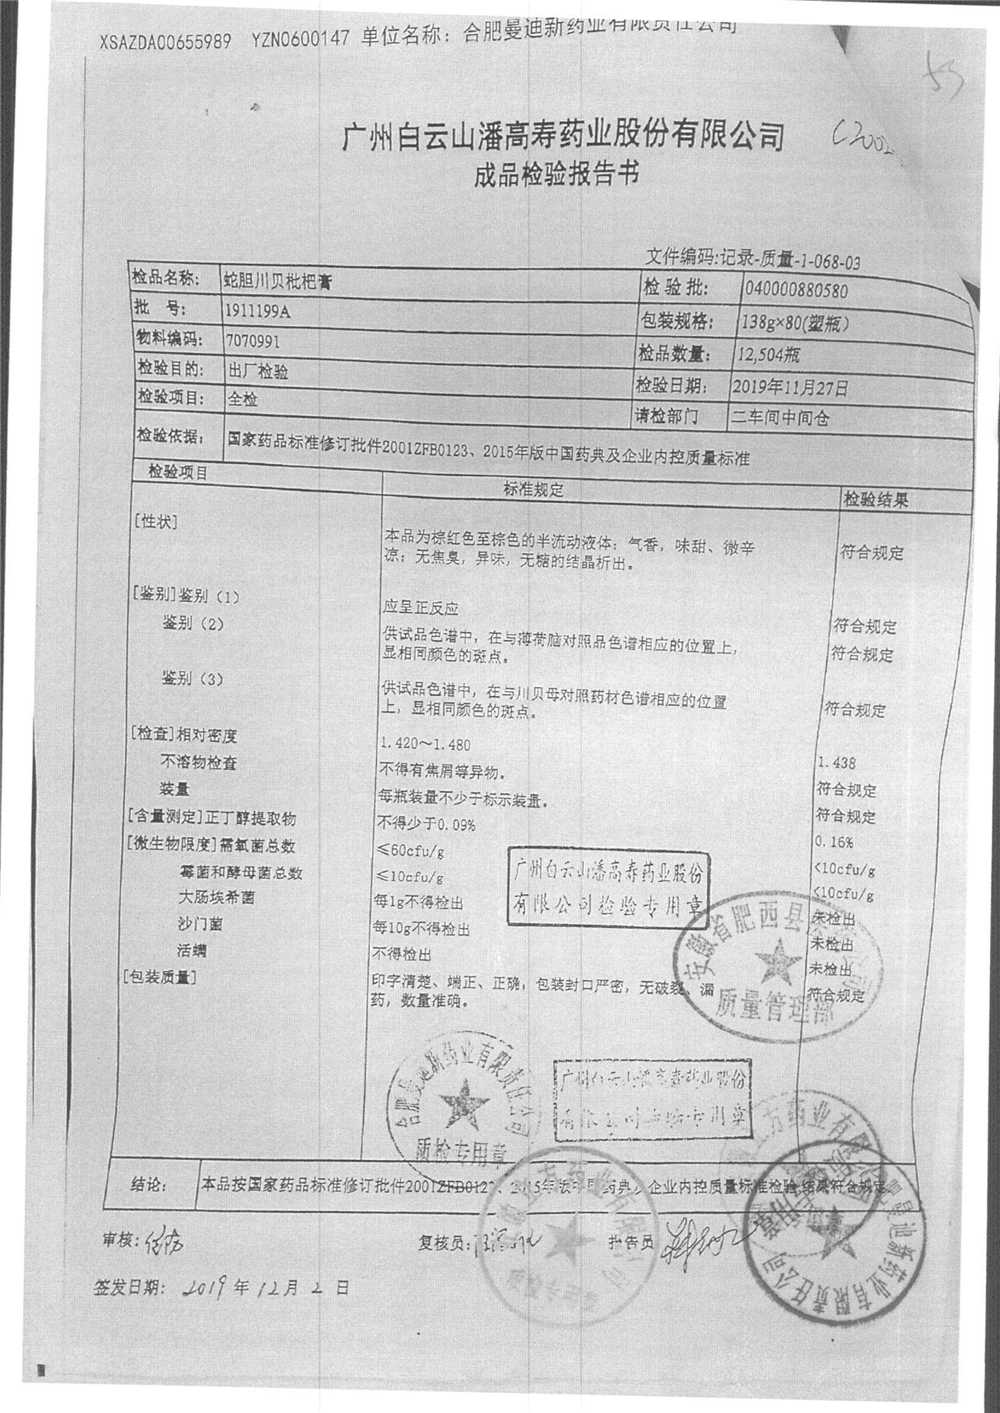 XSAZDA00655989 YZN0600147 单位名称：合肥曼迪新药业有限责任公司
53
广州白云山潘高寿药业股份有限公司
成品检验报告书
文件编码:记录-质量-1-068-03
检品名称: 蛇胆川贝枇杷膏 检 验 批: 040000880580
批 号: 1911199A 包装规格: 138g×80(塑瓶)
物料编码: 7070991 检品数量: 12,504瓶
检验目的: 出厂检验 检验日期: 2019年11月27日
检验项目: 全检 请检部门 二车间中间仓
检验依据: 国家药品标准修订批件2001ZFB0123、2015年版中国药典及企业内控质量标准
检验项目 标准规定 检验结果
[性状] 本品为棕红色至棕色的半流动液体；气香，味甜、微辛
凉；无焦臭，异味，无糖的结晶析出。 符合规定
[鉴别]鉴别（1） 应呈正反应 符合规定
鉴别（2） 供试品色谱中，在与薄荷脑对照品色谱相应的位置上，
显相同颜色的斑点。 符合规定
鉴别（3） 供试品色谱中，在与川贝母对照药材色谱相应的位置
上，显相同颜色的斑点。 符合规定
[检查]相对密度 1.420～1.480 1.438
不溶物检查 不得有焦屑等异物。 符合规定
装量 每瓶装量不少于标示装量。 符合规定
[含量测定]正丁醇提取物 不得少于0.09% 0.16%
[微生物限度]需氧菌总数 ≤60cfu/g <10cfu/g
霉菌和酵母菌总数 ≤10cfu/g <10cfu/g
大肠埃希菌 每1g不得检出 未检出
沙门菌 每10g不得检出 未检出
活螨 不得检出 未检出
[包装质量] 印字清楚、端正、正确，包装封口严密，无破裂、漏
药，数量准确。 符合规定
广州白云山潘高寿药业股份
有限公司检验专用章
安徽省肥西县
质量管理部
合肥曼迪新药业有限责任公司
质检专用章
广州白云山潘高寿药业股份
有限公司检验专用章
结论: 本品按国家药品标准修订批件2001ZFB0123、2015年版中国药典及企业内控质量标准检验,结果符合规定
审核: 复核员: 报告员
签发日期: 2019 年 12 月 2 日
合肥曼迪新药业有限责任公司